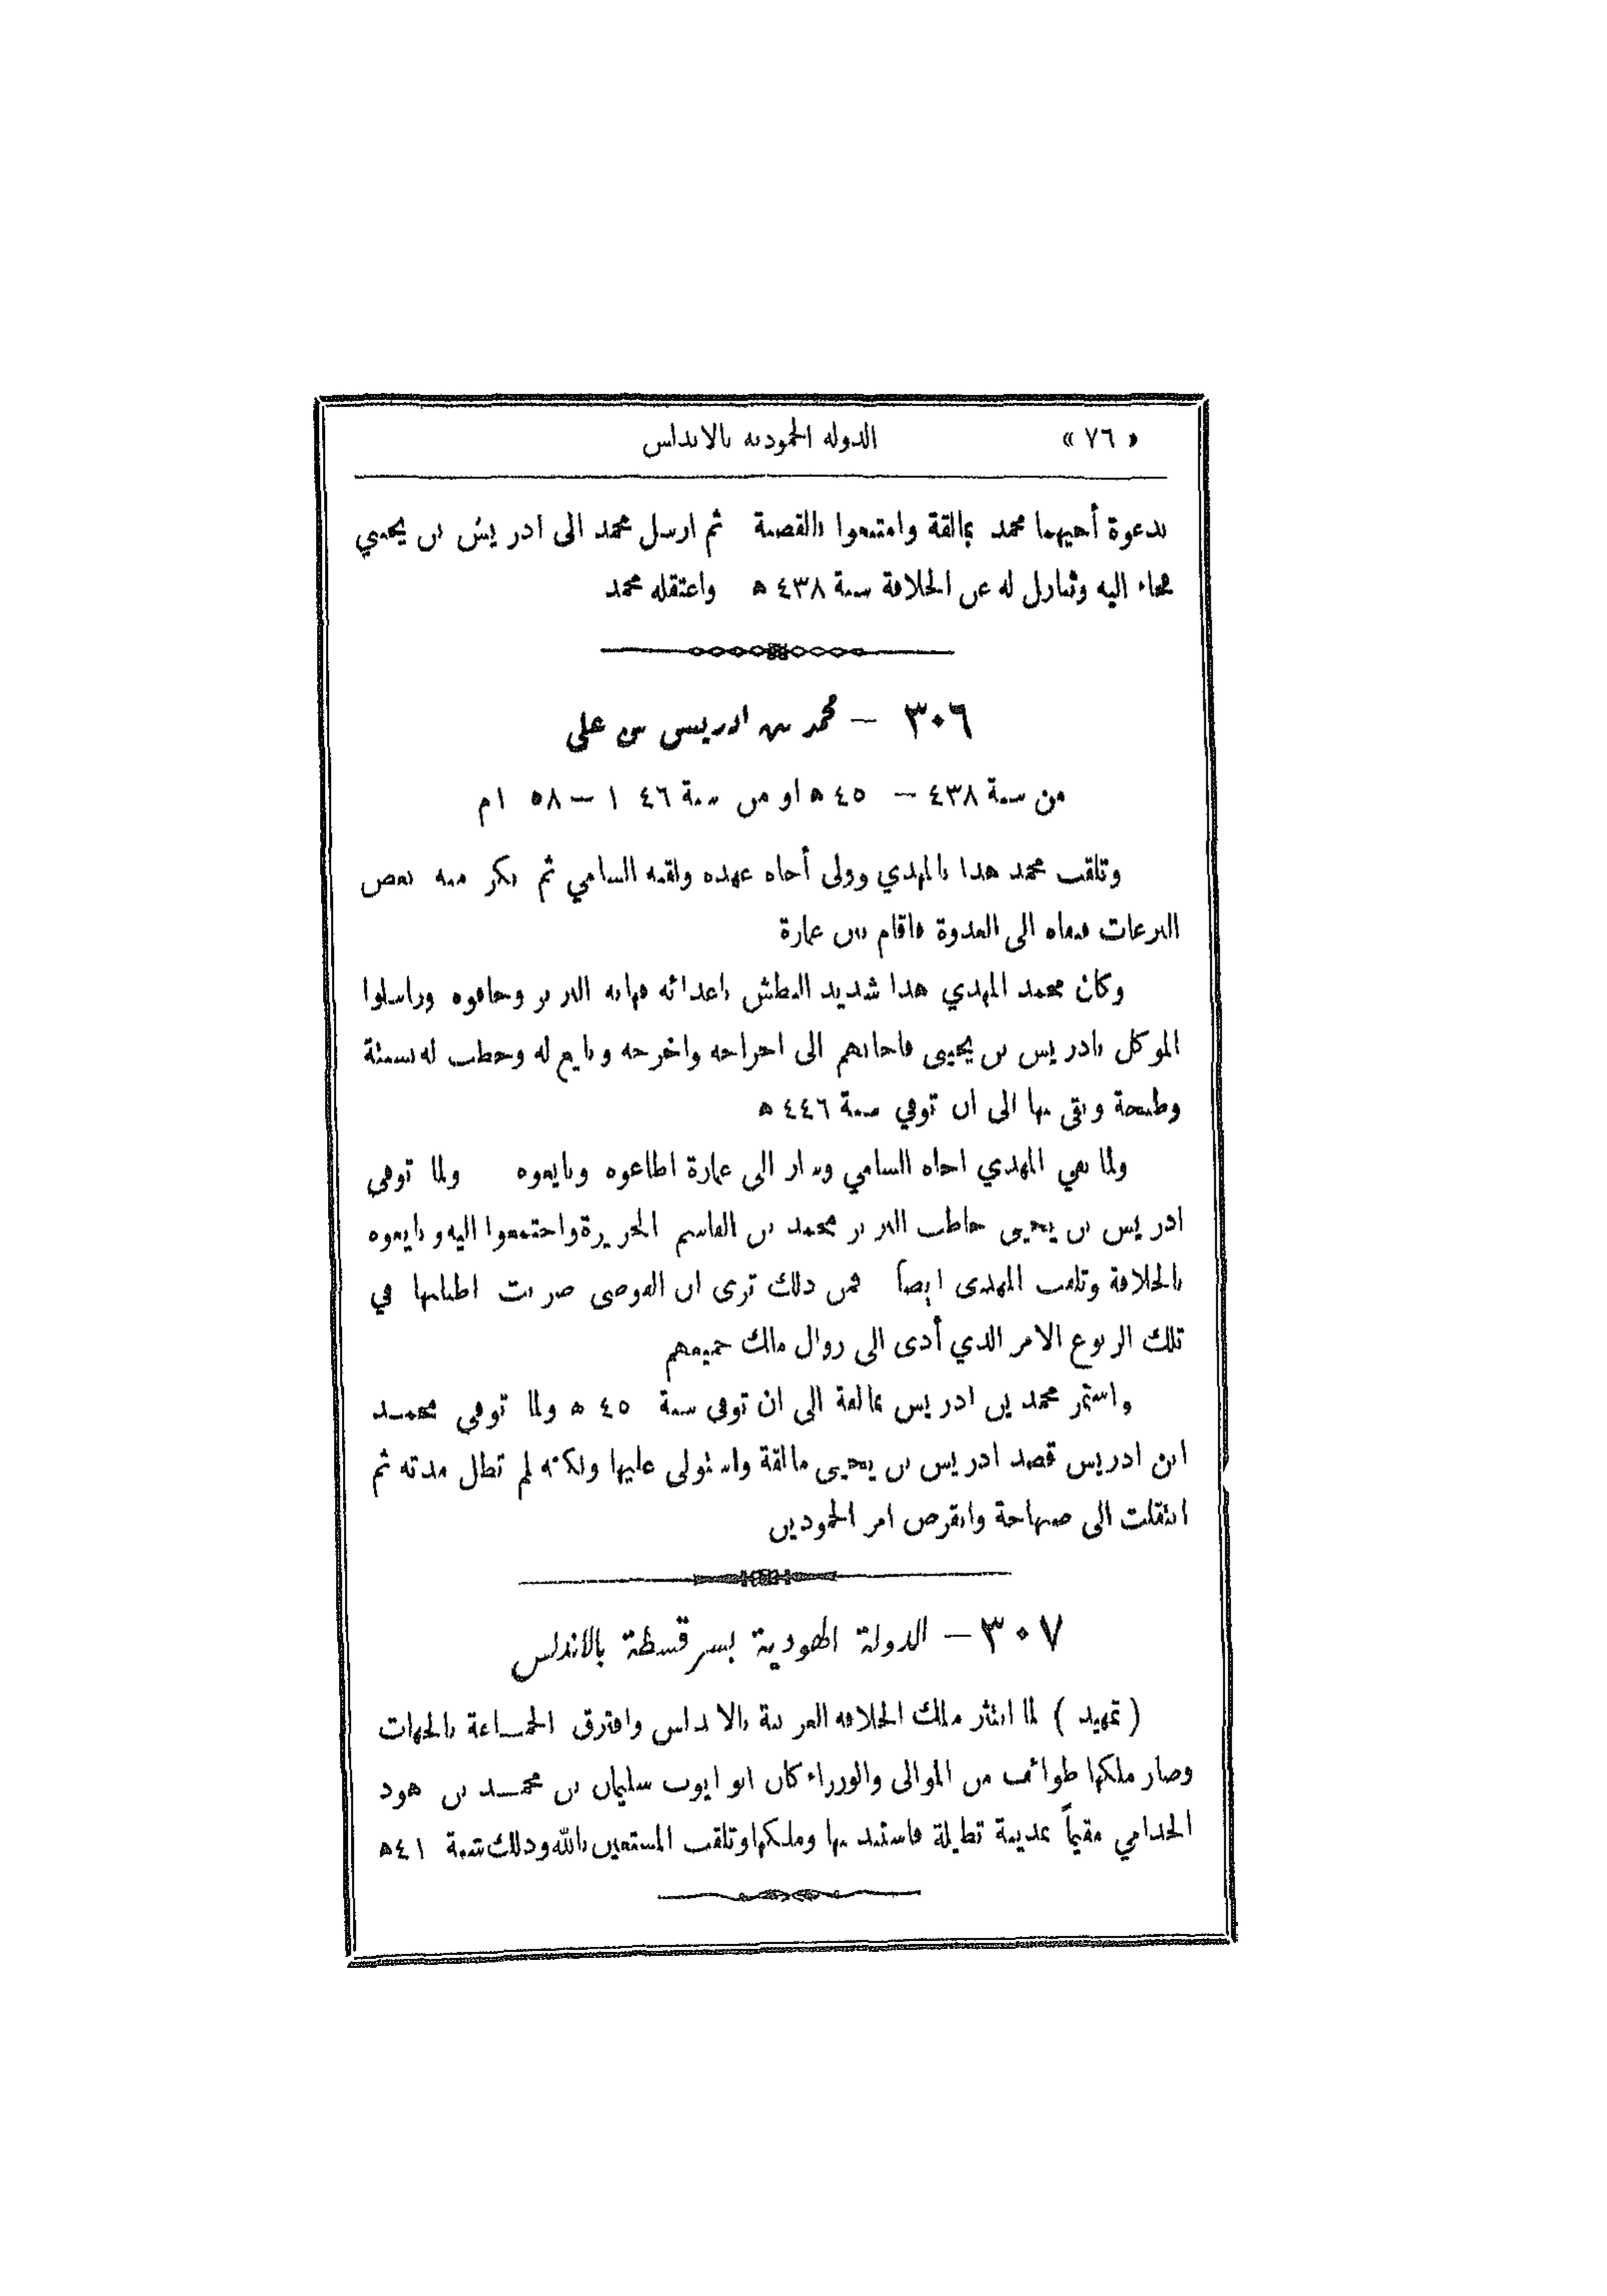 « ٧٦ » الدولة الحمودية بالاندلس
بدعوة أخيهما محمد بمالقة وامتنعوا بالقصبة ثم ارسل محمد الى ادريس بن يحيي
فجاء اليه وتنازل له عن الخلافة سنة ٤٣٨ ه واعتقله محمد
٣٠٦ – محمد بن ادريس بن علي
من سنة ٤٣٨ – ٤٥ ه او من سنة ٤٦ ١ – ٥٨ ١م
وتلقب محمد هذا بالمهدي وولى أخاه عهده ولقبه السامي ثم نكر منه بعض
النزعات فنفاه الى العدوة فاقام بين غمارة
وكان محمد المهدي هذا شديد البطش باعدائه فهابه البربر وخافوه وراسلوا
الموكل بادريس بن يحيى فاجابهم الى اخراجه واخرجه وبايع له وخطب له بسبتة
وطنجة وبقي بها الى ان توفي سنة ٤٤٦ ه
ولما نفي المهدي اخاه السامي وسار الى غمارة اطاعوه وبايعوه ولما توفي
ادريس بن يحيى خاطب البربر محمد بن القاسم الجزيرة واجتمعوا اليه وبايعوه
بالخلافة وتلقب المهدى ايضاً فمن ذلك ترى ان الفوضى ضربت اطنابها في
تلك الربوع الامر الذي أدى الى زوال ملك جميعهم
واستمر محمد بن ادريس بمالقة الى ان توفى سنة ٤٥ ه ولما توفي محمد
ابن ادريس قصد ادريس بن يحيى مالقة واستولى عليها ولكنه لم تطل مدته ثم
انتقلت الى صنهاجة وانقرض امر الحموديين
٣٠٧ – الدولة الهودية بسرقسطة بالاندلس
( تمهيد ) لما انتثر ملك الخلافة العربية بالاندلس وافترق الجماعة بالجهات
وصار ملكها طوائف من الموالى والوزراء كان ابو ايوب سليمان بن محمد بن هود
الجذامي مقيماً بمدينة تطيلة فاستبد بها وملكها وتلقب المستعين بالله وذلك سنة ٤١ ه